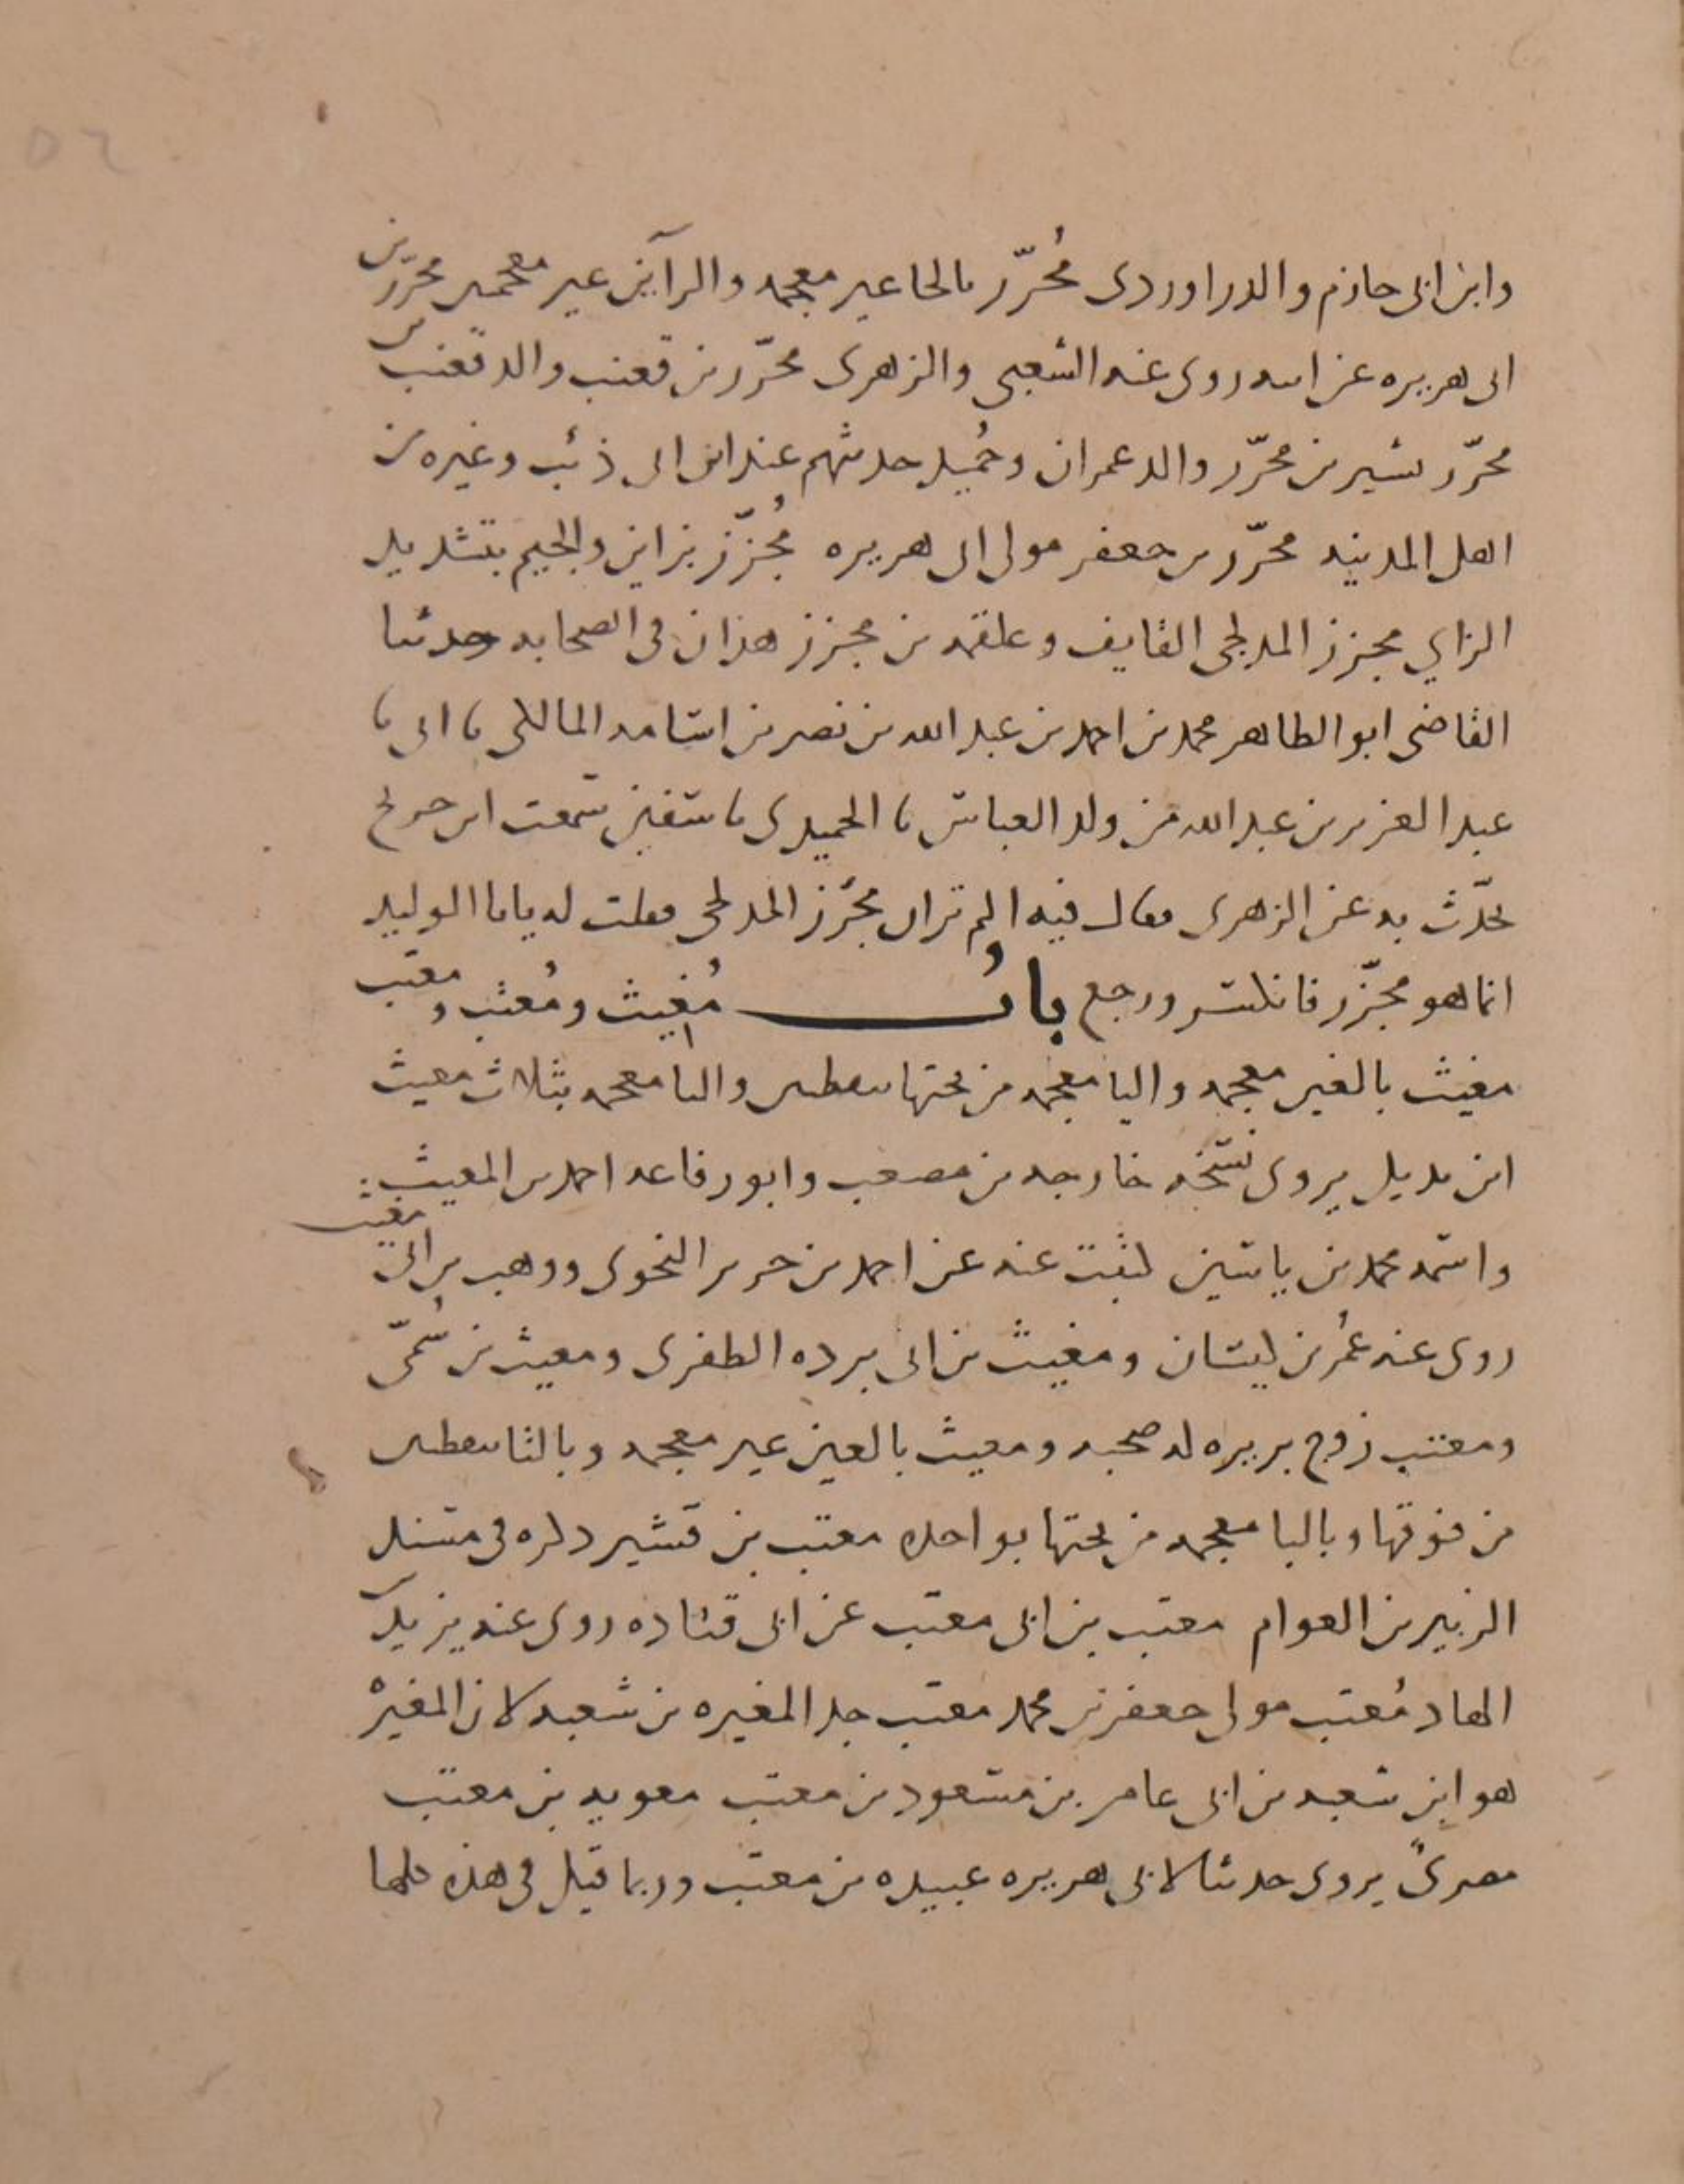 وابن ابى حازم والدراوردى مُحرّر بالحا غير معجمه والرآين غير معجمين محرّر بن
ابى هريره عن ابيه روى عنه الشعبى والزهرى محرّر بن قعنب والد قعنب بن
محرّر بشير بن محرّر والد عمران وحُميد حديثهم عند ابن ابى ذئب وغيره من
اهل المدينه محرّر بن جعفر مولى ابى هريره مُجزّز بزاين والجيم بتشديد
الزاي مجزز المدلجى القايف وعلقمه بن مجزز هذان فى الصحابه حدثنا
القاضى ابو الطاهر محمد بن احمد بن عبد الله بن نصر بن اسامه المالكى نا ابى نا
عبد العزيز بن عبد الله من ولد العباس نا الحميدى نا سفين سمعت ابن جريج
يحدّث به عن الزهرى فقال فيه الم ترى ان محرز المدلجى فقلت له يابا الوليد
انما هو مجزّز فانكسر ورجع بابُ مُغيث ومُعتب ومعتب
مغيث بالغين معجمه واليا معجمه من تحتها بنقطتين والثا معجمه بثلاث مغيث
ابن بديل يروى نسخه خارجه بن مصعب وابو رفاعه احمد بن المغيث
واسمه محمد بن ياسين كتبت عنه عن احمد بن حرير النحوى ووهب بن ابى مغيث
روى عنه عُمر بن كيسان ومغيث بن ابى برده الظفرى ومغيث بن سُمَىّ
ومغيث زوج بريره له صحبه ومعيث بالعين غير معجمه وبالتا بنقطتين
من فوقها وبالبا معجمه من تحتها بواحده معتب بن قشير ذكره فى مسند
الزبير بن العوام معتب بن ابى معتب عن ابى قتاده روى عنه يزيد بن
الهاد مُعتب مولى جعفر بن محمد معتب جد المغيره بن شعبه لان المغيرْه
هو ابن شعبه بن ابى عامر بن مسعود بن معتب معويه بن معتب
مصرىٌ يروى حديثا لابى هريره عبيده بن معتب وربما قيل فى هذه كلها